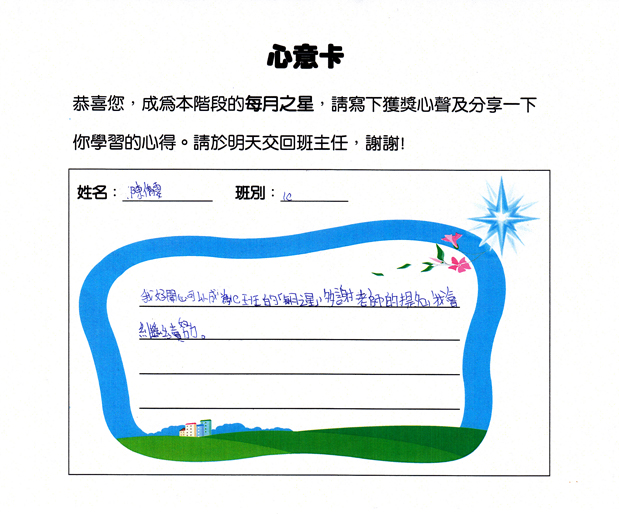 心意卡
恭喜您，成為本階段的每月之星，請寫下獲獎心聲及分享一下
你學習的心得。請於明天交回班主任，謝謝!
姓名：陳
班別：1C
我好開心可以成為C班的「明星」，多謝老師的提名，我會
繼續努力。